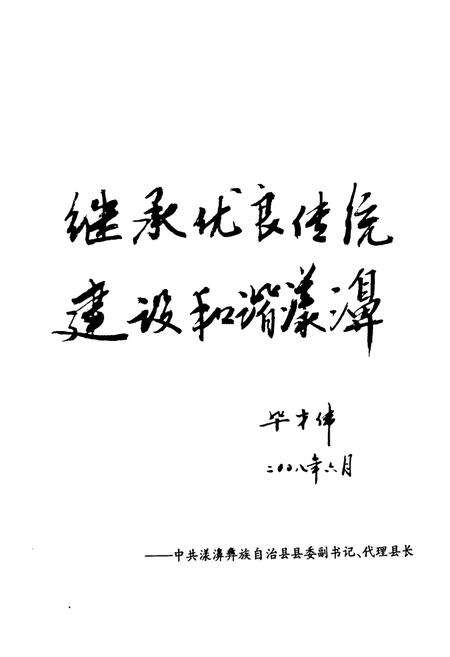 继承优良传统
建设和谐漾濞
毕才伟
二〇〇八年六月
——中共漾濞彝族自治县县委副书记、代理县长